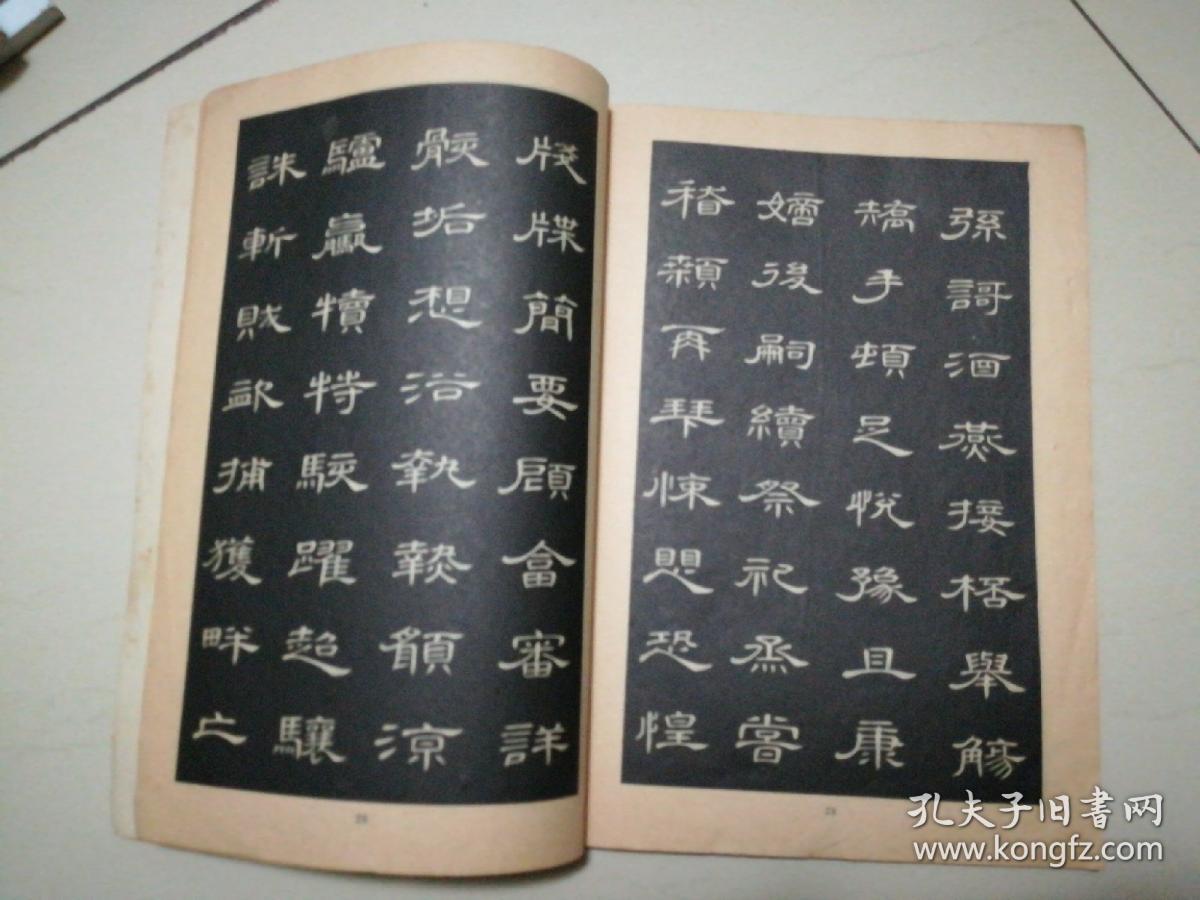 弦謌酒燕接桮舉觴
矯手頓足悅豫且康
嫡後嗣續祭祀烝嘗
稽顙再拜悚愳恐惶
28
牋牒簡要顧畣審詳
骸垢想浴執熱願涼
驢驘犢特駭躍超驤
誅斬賊盜捕獲畔亡
29
孔夫子旧书网
www.kongfz.com